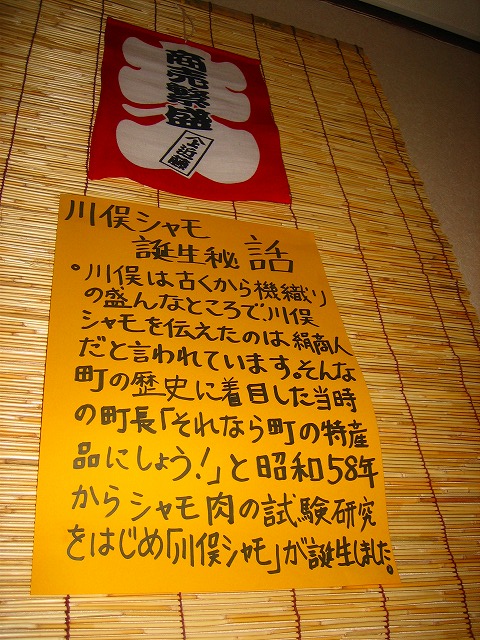 商売繁盛
川俣シャモ
誕生秘話
川俣は古くから機織り
の盛んなところで、川俣
シャモを伝えたのは絹商人
だと言われています。そんな
町の歴史に着目した当時
の町長「それなら町の特産
品にしょう!」と昭和58年
からシャモ肉の試験研究
をはじめ「川俣シャモ」が誕生しました。